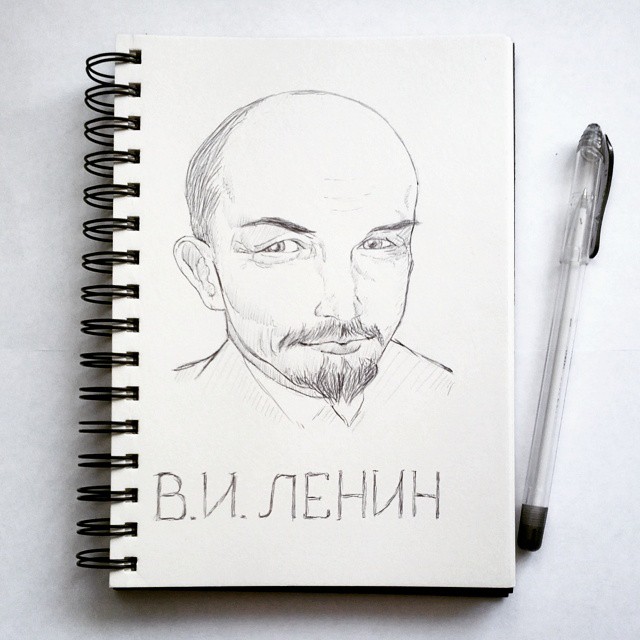 В.И. ЛЕНИН